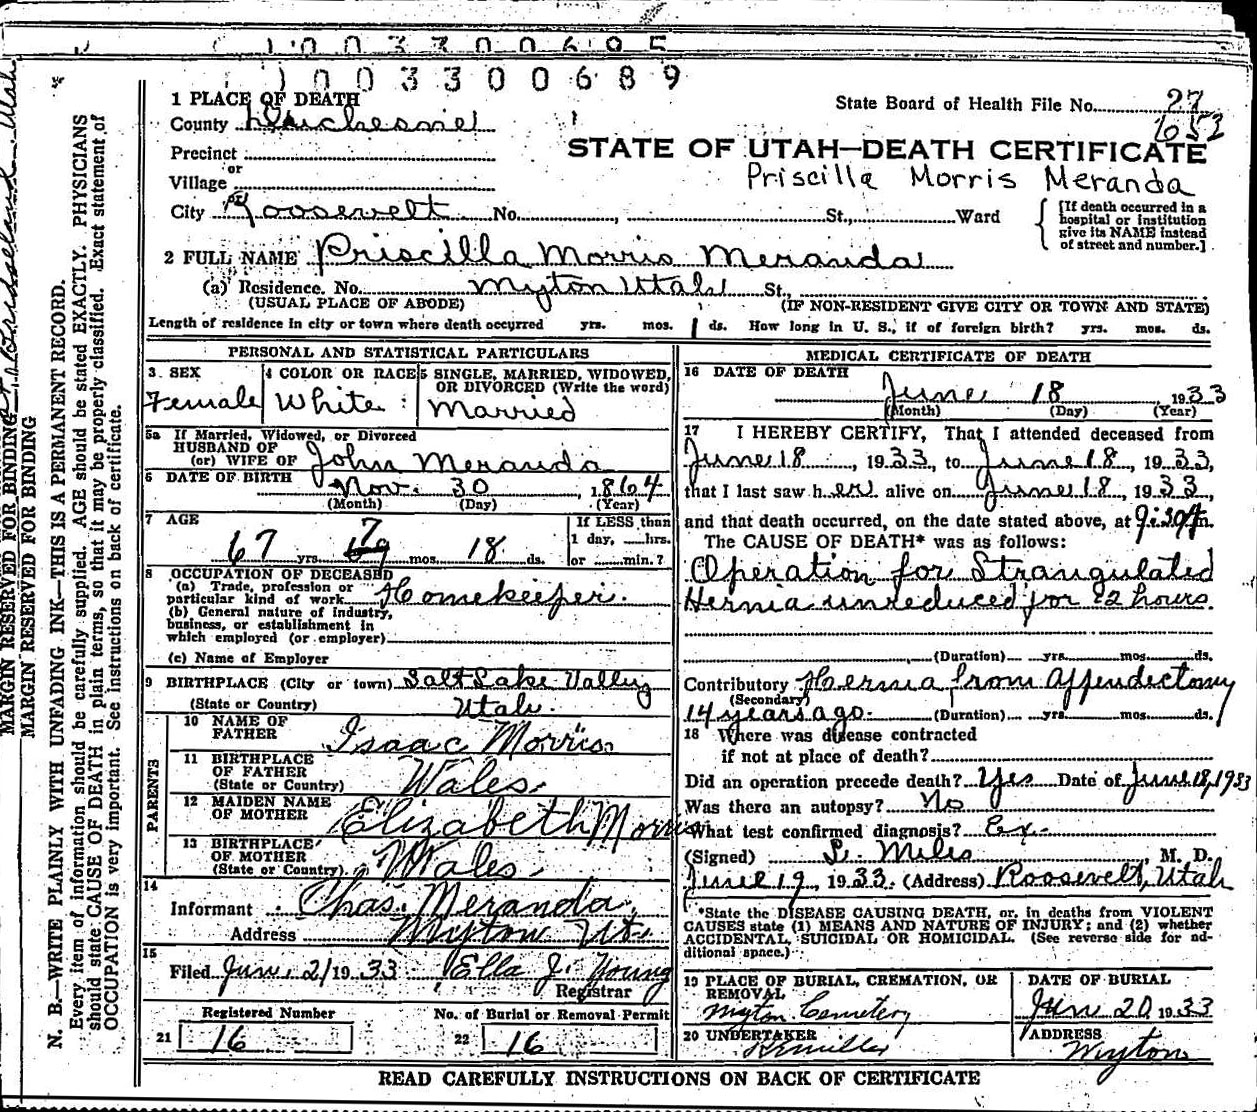 1003300695
1003300689
1 PLACE OF DEATH
County Duchesne
State Board of Health File No. 27
653
STATE OF UTAH—DEATH CERTIFICATE
Priscilla Morris Meranda
Precinct
or
Village
or
City Roosevelt No. , St., Ward
[If death occurred in a hospital or institution give its NAME instead of street and number.]
2 FULL NAME Priscilla Morris Meranda
(a) Residence. No. Myton Utah St.,
(USUAL PLACE OF ABODE) (IF NON-RESIDENT GIVE CITY OR TOWN AND STATE)
Length of residence in city or town where death occurred yrs. mos. 1 ds. How long in U. S., if of foreign birth? yrs. mos. ds.
PERSONAL AND STATISTICAL PARTICULARS
3 SEX Female
4 COLOR OR RACE White
5 SINGLE, MARRIED, WIDOWED, OR DIVORCED (Write the word) Married
5a If Married, Widowed, or Divorced
HUSBAND OF
(or) WIFE OF John Meranda
6 DATE OF BIRTH Nov. 30, 1864
(Month) (Day) (Year)
7 AGE 67 yrs. 7 mos. 18 ds.
If LESS than 1 day, hrs. or min.?
8 OCCUPATION OF DECEASED
(a) Trade, profession or particular kind of work Homekeeper.
(b) General nature of industry, business, or establishment in which employed (or employer)
(c) Name of Employer
9 BIRTHPLACE (City or town) Salt Lake Valley
(State or Country) Utah.
PARENTS
10 NAME OF FATHER Isaac Morris
11 BIRTHPLACE OF FATHER (State or Country) Wales
12 MAIDEN NAME OF MOTHER Elizabeth Morris
13 BIRTHPLACE OF MOTHER (State or Country) Wales
14 Informant Chas. Meranda
Address Myton Ut.
15 Filed Jun. 21 1933 Ella J. Young
Registrar
Registered Number
21 16
No. of Burial or Removal Permit
22 16
MEDICAL CERTIFICATE OF DEATH
16 DATE OF DEATH
June 18 1933
(Month) (Day) (Year)
17 I HEREBY CERTIFY, That I attended deceased from
June 18, 1933, to June 18, 1933,
that I last saw her alive on June 18, 1933,
and that death occurred, on the date stated above, at m.
The CAUSE OF DEATH* was as follows:
Operation for Strangulated
Hernia unreduced for hours.
(Duration) yrs. mos. ds.
Contributory Hernia from appendectomy
(Secondary)
14 years ago. (Duration) yrs. mos. ds.
18 Where was disease contracted
if not at place of death?
Did an operation precede death? Yes Date of June 18, 1933
Was there an autopsy? No
What test confirmed diagnosis? Ex.
(Signed) Miles, M. D.
June 19, 1933. (Address) Roosevelt, Utah
*State the DISEASE CAUSING DEATH, or, in deaths from VIOLENT
CAUSES state (1) MEANS AND NATURE OF INJURY; and (2) whether
ACCIDENTAL, SUICIDAL OR HOMICIDAL. (See reverse side for additional space.)
19 PLACE OF BURIAL, CREMATION, OR REMOVAL
Myton Cemetery
DATE OF BURIAL
Jun 20 1933
20 UNDERTAKER
Miller
ADDRESS
Myton
READ CAREFULLY INSTRUCTIONS ON BACK OF CERTIFICATE
MARGIN RESERVED FOR BINDING
MARGIN RESERVED FOR BINDING
N. B.—WRITE PLAINLY WITH UNFADING INK—THIS IS A PERMANENT RECORD.
Every item of information should be carefully supplied. AGE should be stated EXACTLY. PHYSICIANS
should state CAUSE OF DEATH in plain terms, so that it may be properly classified. Exact statement of
OCCUPATION is very important. See instructions on back of certificate.